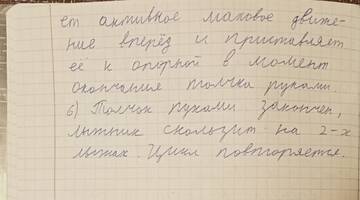 ет активное маховое движе-
ние вперёд и приставляет
её к опорной в момент
окончания толчка руками.
6) Толчок руками закончен,
лыжник скользит на 2-х
лыжах. Цикл повторяется.